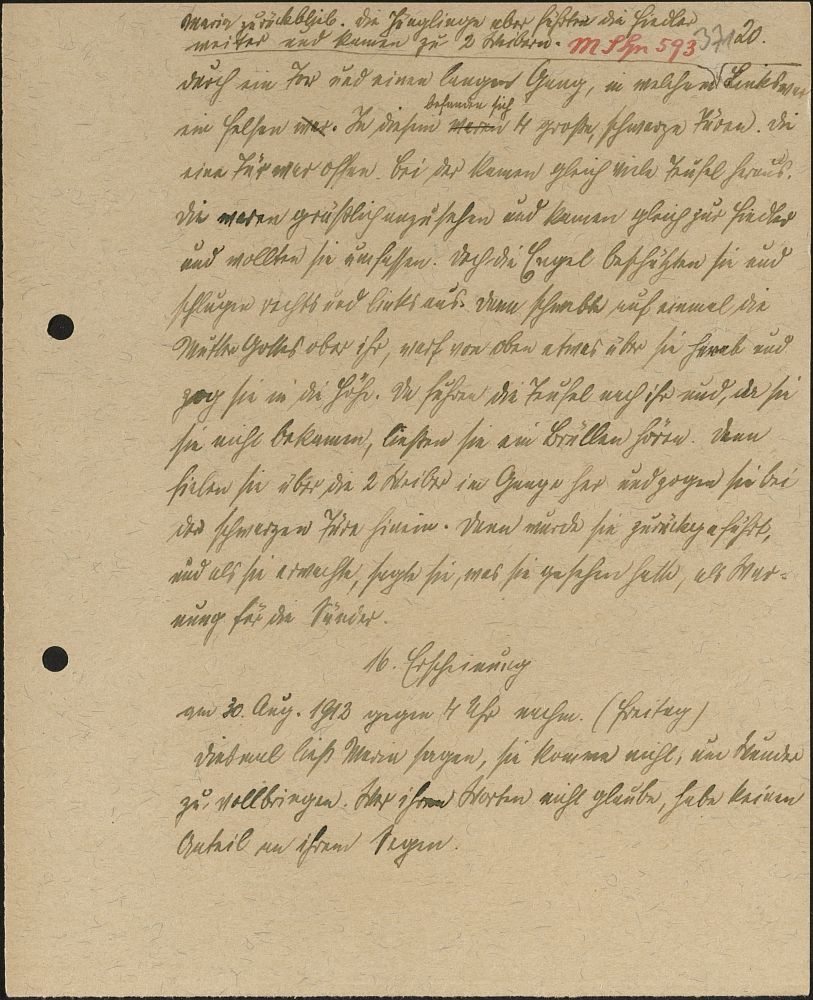 Maria zurückblieb. Die Jünglinge aber führten die Hiedler
weiter und kamen zu 2 Weibern. M S Gr 593 371 20.
durch ein Tor und einen langen Gang, in welchem links war
ein Felsen war. In diesem waren befanden sich 4 große, schwarze Türen. Die
eine Tür war offen. Bei der kamen gleich viele Teufel heraus.
Die waren gräßlich anzusehen und kamen gleich zur Hiedler
und wollten sie umfassen. Doch die Engel beschützten sie und
schlugen rechts und links aus. Dann schwebte auf einmal die
Mutter Gottes ober ihr, warf von oben etwas über sie herab und
zog sie in die Höhe. Da fuhren die Teufel nach ihr und, da sie
sie nicht bekamen, ließen sie ein Brüllen hören. Dann
fielen sie über die 2 Weiber im Gange her und zogen sie bei
der schwarzen Türe hinein. Dann wurde sie zurückgeführt,
und als sie erwachte, sagte sie, was sie gesehen hatte, als War-
nung für die Sünder.
16. Erscheinung
am 30. Aug. 1912 gegen 4 Uhr nachm. (Freitag)
Diesmal ließ Maria sagen, sie komme nicht, um Wunder
zu vollbringen. Wer ihren Worten nicht glaube, habe keinen
Anteil an ihrem Segen.